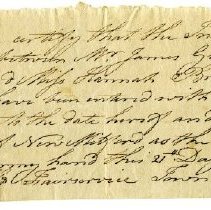 certify that the In
between Mr James G
d Miss Hannah B
have been entered with
to the date hereof and
of New Milford as the
my hand this 21st Day
Town